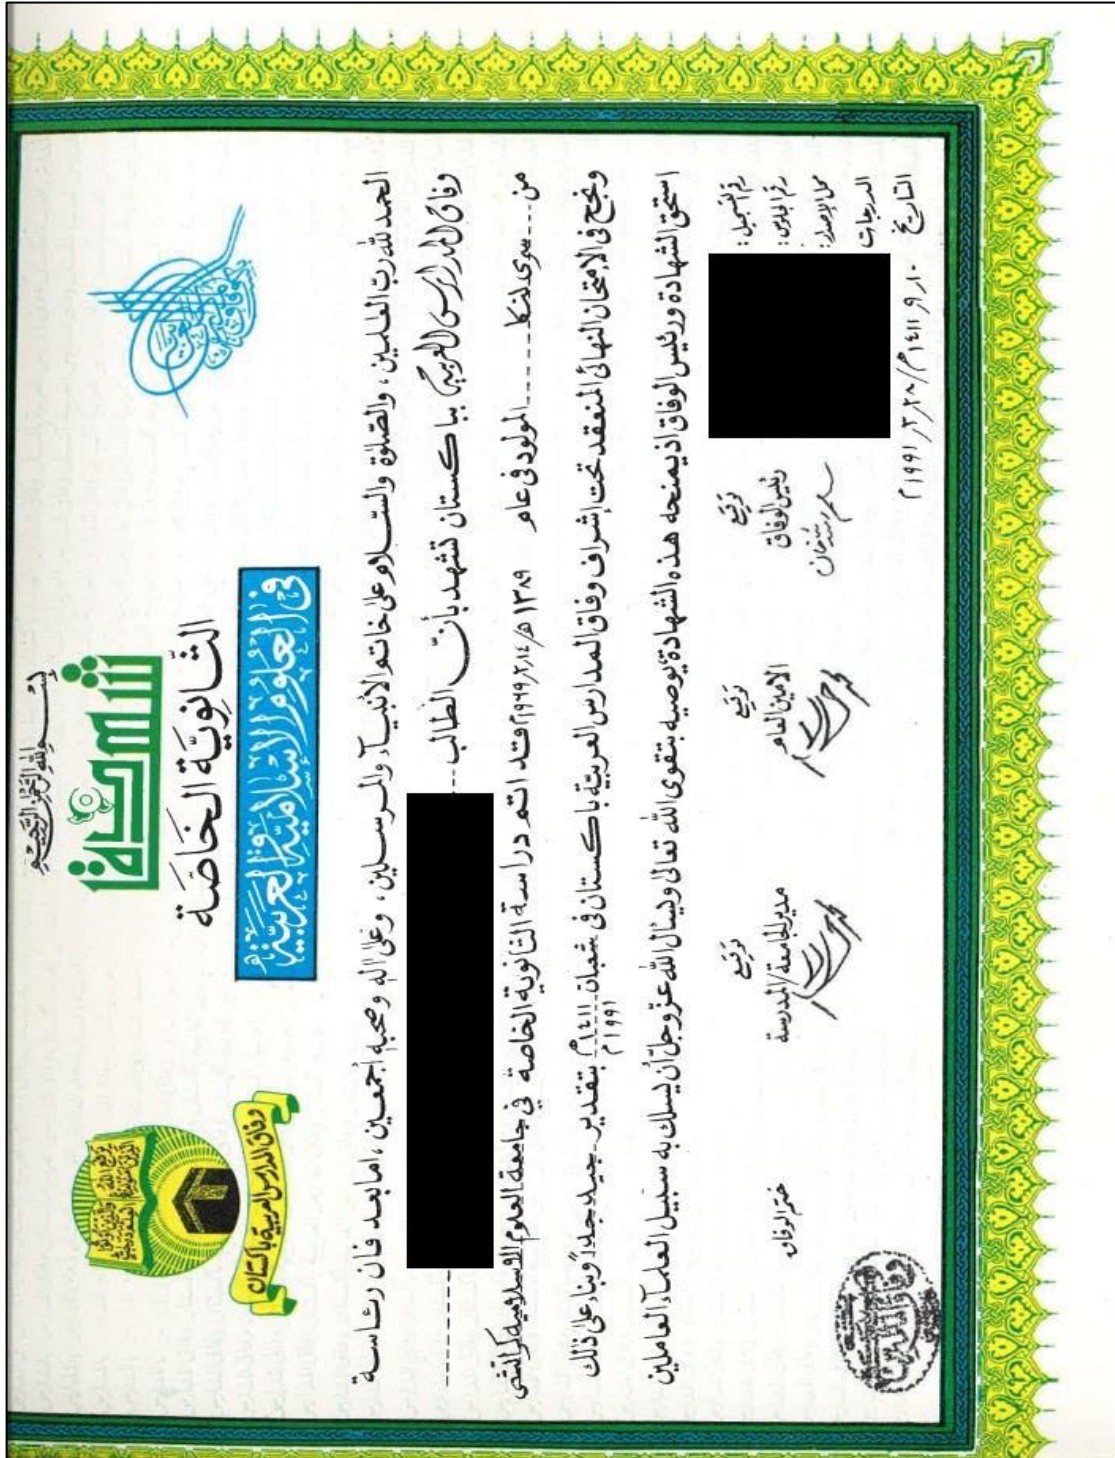 بسم الله الرحمن الرحيم
شهادة
الثانوية الخاصة
في العلوم الإسلامية والعربية
وفاق المدارس العربية باكستان
الحمد لله ربّ العلمين، والصّلوٰة والسّلام علىٰ خاتم الانبيآء والمرسلين، وعلىٰ اله وصحبه أجمعين، امابعد فان رئاسة
وفاق المدارس العربية بباكستان تشهد بأنّ الطالب
من سری لنكا المولود في عام ١٣٨٩ھ/١٩٦٩٫٢٫١٤م قد اتم دراسة الثانوية الخاصة في جامعة العلوم الاسلامیه کراتشي
ونجح في الامتحان النهائي المنعقد تحت إشراف وفاق المدارس العربية باكستان في شعبان ١٤١١ھ بتقدير جید جداً وبناء على ذلك
١٩٩١م
استحق الشهادة ورئيس الوفاق اذ يمنحه هذه الشهادة يوصيه بتقوى الله تعالىٰ ويسأل الله عزّ وجلّ أن يسلك به سبيل العلمآء العاملين
رقم التسجيل:
رقم الجلوس:
محل الإصدار:
الدرجات
التاريخ ١٤١١٫٩٫١٠ھ/١٩٩١٫٣٫٢٨م
توقيع
رئيس الوفاق
توقيع
الامين العام
توقيع
مدير الجامعة/المدرسة
ختم الوفاق